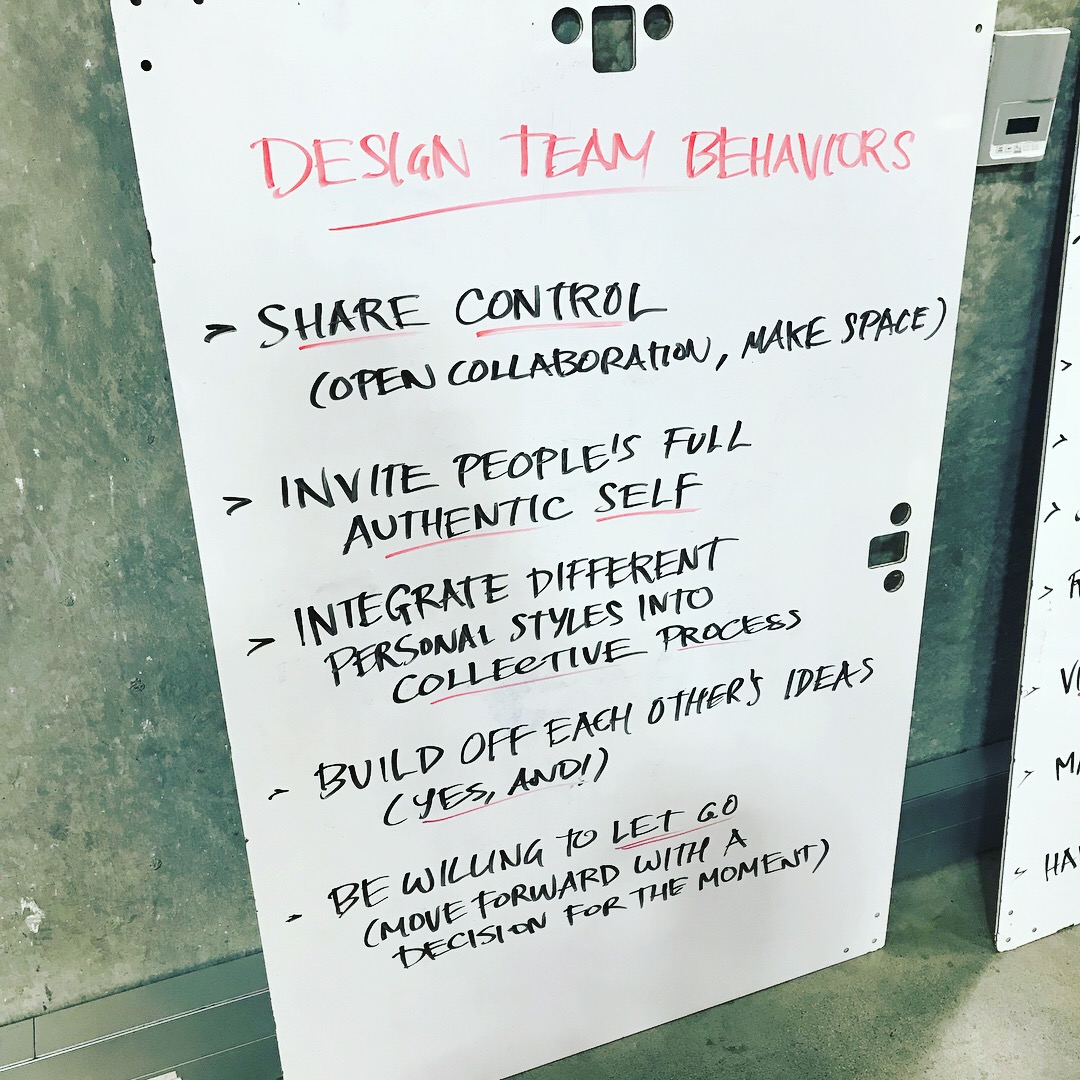 DESIGN TEAM BEHAVIORS
> SHARE CONTROL
(OPEN COLLABORATION, MAKE SPACE)
> INVITE PEOPLE'S FULL
AUTHENTIC SELF
> INTEGRATE DIFFERENT
PERSONAL STYLES INTO
COLLECTIVE PROCESS
> BUILD OFF EACH OTHER'S IDEAS
(YES, AND!)
> BE WILLING TO LET GO
(MOVE FORWARD WITH A
DECISION FOR THE MOMENT)